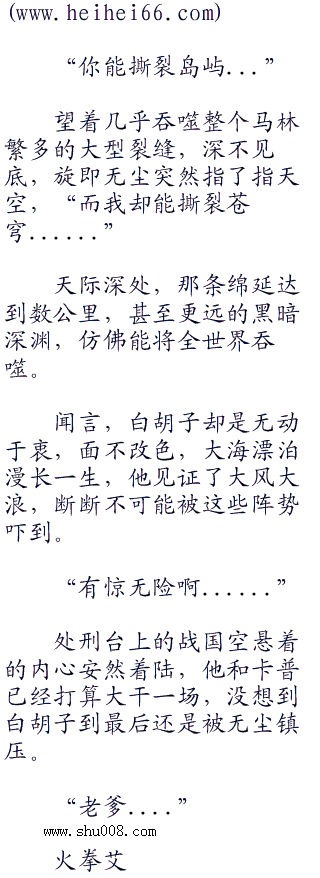 (www.heihei66.com)
“你能撕裂岛屿...”
望着几乎吞噬整个马林
繁多的大型裂缝，深不见
底，旋即无尘突然指了指天
空，“而我却能撕裂苍
穹......”
天际深处，那条绵延达
到数公里，甚至更远的黑暗
深渊，仿佛能将全世界吞
噬。
闻言，白胡子却是无动
于衷，面不改色，大海漂泊
漫长一生，他见证了大风大
浪，断断不可能被这些阵势
吓到。
“有惊无险啊......”
处刑台上的战国空悬着
的内心安然着陆，他和卡普
已经打算大干一场，没想到
白胡子到最后还是被无尘镇
压。
“老爹....”
www.shu008.com
火拳艾